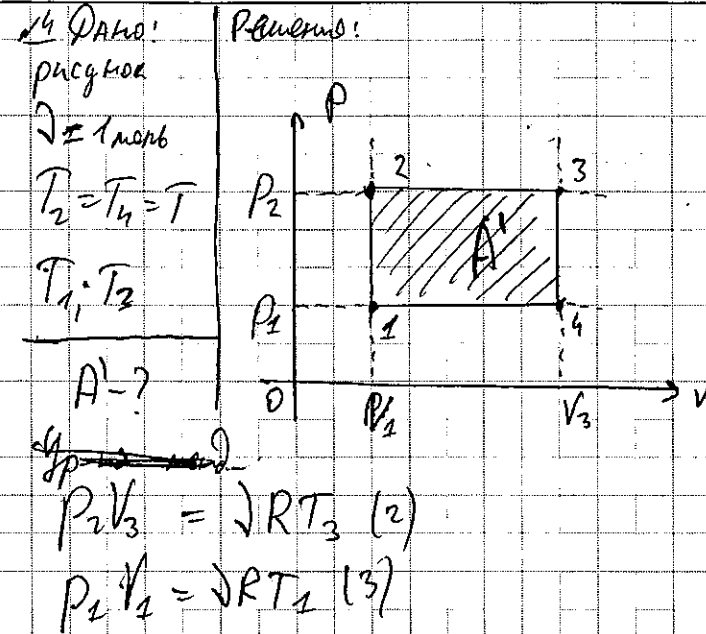 √4 Дано:
рисунок
ν = 1 моль
T₂ = T₄ = T
T₁; T₃
A' - ?
Решение:
P
2
3
P₂
A'
P₁
1
4
0
V₁
V₃
V
P₂V₃ = νRT₃ (2)
P₁V₁ = νRT₁ (3)